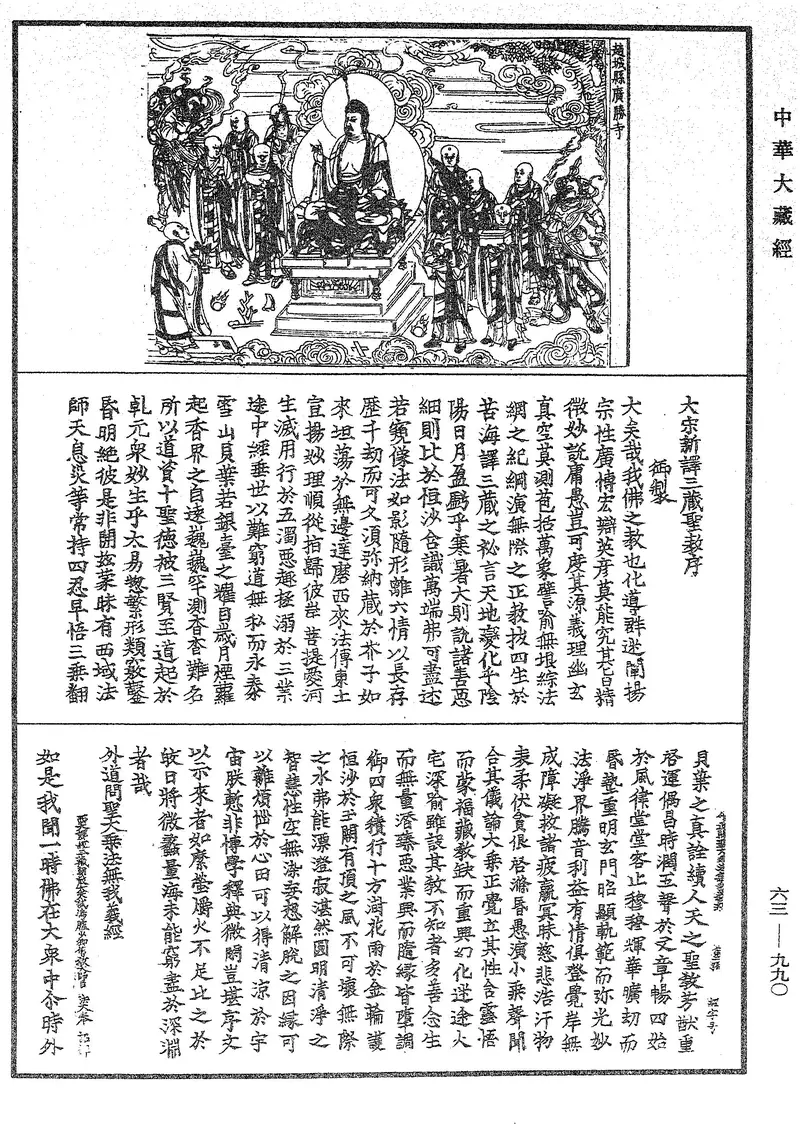 中華大藏經
趙城縣廣勝寺
大宋新譯三藏聖教序
御製
大矣哉我佛之教也化導群迷闡揚
宗性廣博宏辯英彥莫能究其旨精
微妙說庸愚豈可度其源義理幽玄
真空莫測苞括萬象譬喻無垠綜法
網之紀綱演無際之正教拔四生於
苦海譯三藏之祕言天地變化乎陰
陽日月盈虧乎寒暑大則說諸善惡
細則比於恒沙含識萬端弗可盡述
若窺像法如影隨形離六情以長存
歷千劫而可久須弥納藏於芥子如
來坦蕩於無邊達磨西來法傳東土
宣揚妙理順從指歸彼岸菩提愛河
生滅用行於五濁惡趣拯溺於三業
途中經垂世以難窮道無私而永泰
雪山貝葉若銀臺之耀目歲月煙蘿
起香界之自遠巍巍罕測杳杳難名
所以道資十聖德被三賢至道起於
乾元衆妙生乎太易惣繁形類竅鑿
昏明絕彼是非開茲蒙昧有西域法
師天息災等常持四忍早悟三乘翻
貝葉之真詮續人天之聖教芳猷重
啓運偶昌時潤五聲於文章暢四始
於風律堂堂容止穆穆輝華曠劫而
昏蟄重明玄門昭顯軌範而弥光妙
法淨界騰音利益有情俱登覺岸無
成障礙救諸疲羸冥昧慈悲浩汗物
表柔伏貪很啓滌昏愚演小乘聲聞
合其儀論大乘正覺立其性含靈悟
而蒙福藏教缺而重興幻化迷途火
宅深喻雖設其教不知者多善念生
而無量潛臻惡業興而隨緣皆墮調
御四衆積行十方澍花雨於金輪護
恒沙於玉闕有頂之風不可壞無際
之水弗能漂澄寂湛然圓明清淨之
智慧性空無染妄想解脫之因緣可
以離煩惱於心田可以得清涼於宇
宙朕慙非博學釋典微閑豈堪序文
以示來者如縻螢爝火不足比之於
皎日將微蠡量海未能窮盡於深淵
者哉
外道問聖大乘法無我義經
如是我聞一時佛在大衆中尒時外
六三—九九〇